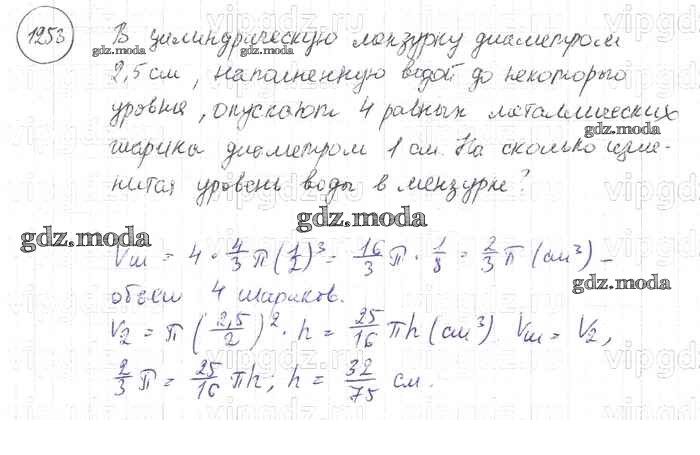 1253
В цилиндрическую мензурку диаметром
2,5 см, наполненную водой до некоторого
уровня, опускают 4 равных металлических
шарика диаметром 1 см. На сколько изме-
нится уровень воды в мензурке?
Vш = 4 · 4/3 π (1/2)³ = 16/3 π · 1/8 = 2/3 π (см³) –
объем 4 шариков.
V2 = π (2,5/2)² · h = 25/16 πh (см³). Vш = V2,
2/3 π = 25/16 πh; h = 32/75 см.
gdz.moda
gdz.moda
gdz.moda
gdz.moda
gdz.moda
gdz.moda
gdz.moda